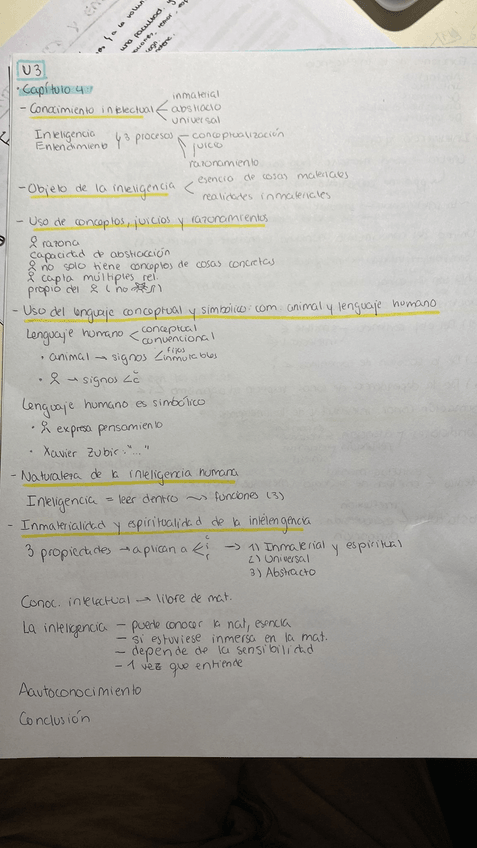 U3
• Capítulo 4
- Conocimiento intelectual < inmaterial
abstracto
universal
Inteligencia
Entendimiento } 3 procesos - conceptualización
juicio
razonamiento
- Objeto de la inteligencia < esencia de cosas materiales
realidades inmateriales
- Uso de conceptos, juicios y razonamientos
razona
capacidad de abstracción
no solo tiene conceptos de cosas concretas
capta múltiples rel.
propio del (no )
- Uso del lenguaje conceptual y simbólico: com. animal y lenguaje humano
Lenguaje humano < conceptual
convencional
• animal → signos < fijos
inmutables
• → signos < c
c
Lenguaje humano es simbólico
• expresa pensamiento
• Xavier Zubiri: "..."
- Naturaleza de la inteligencia humana
Inteligencia = leer dentro ~> funciones (3)
- Inmaterialidad y espiritualidad de la intelengencia
3 propiedades → aplican a < c
i
r
→ 1) Inmaterial y espiritual
2) Universal
3) Abstracto
Conoc. intelectual → libre de mat.
La inteligencia - puede conocer la nat, esencia
- si estuviese inmersa en la mat.
- depende de la sensibilidad
- 1 vez que entiende
Aautoconocimiento
Conclusión